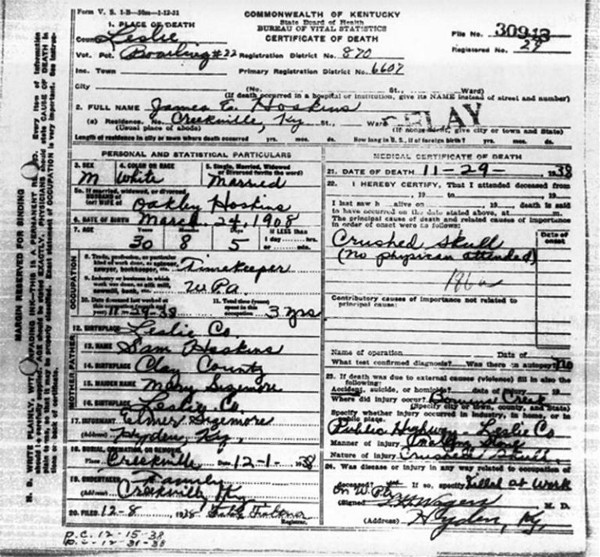 Form V. S. 1-B
COMMONWEALTH OF KENTUCKY
State Board of Health
BUREAU OF VITAL STATISTICS
CERTIFICATE OF DEATH
File No. 30913
Registered No. 29
1. PLACE OF DEATH
County Leslie
Vot. Pct. Bowling #22 Registration District No. 870
Inc. Town Primary Registration District No. 6607
City (No. St., Ward)
(If death occurred in a hospital or institution, give its NAME instead of street and number)
2. FULL NAME James E. Hoskins
(a) Residence. No. Creekville, Ky St., Ward
DELAY
(Usual place of abode) (If nonresident, give city or town and State)
Length of residence in city or town where death occurred yrs. mos. ds. How long in U. S., if of foreign birth? yrs. mos. ds.
PERSONAL AND STATISTICAL PARTICULARS
3. SEX M
4. COLOR OR RACE White
5. Single, Married, Widowed or Divorced (write the word) Married
5a. If married, widowed, or divorced
HUSBAND of
(or) WIFE of Oakley Hoskins
6. DATE OF BIRTH March 24, 1908
7. AGE 30 8 5
If LESS than
1 day hrs.
or min.
OCCUPATION
8. Trade, profession, or particular kind of work done, as spinner, sawyer, bookkeeper, etc. Timekeeper
9. Industry or business in which work was done, as silk mill, sawmill, bank, etc. W.P.A.
10. Date deceased last worked at 11-29-38
11. Total time (years) spent in this occupation 3 yrs
12. BIRTHPLACE Leslie Co
FATHER
13. NAME Sam Hoskins
14. BIRTHPLACE Clay County
MOTHER
15. MAIDEN NAME Mary Sizemore
16. BIRTHPLACE Leslie Co.
17. INFORMANT Elmer Sizemore
(Address) Hyden, Ky.
18. BURIAL, CREMATION, OR REMOVAL
Place Creekville 12-1-38
19. UNDERTAKER Family
Creekville, Ky
20. FILED 12-8 1938
Registrar.
MEDICAL CERTIFICATE OF DEATH
21. DATE OF DEATH 11-29-1938
22. I HEREBY CERTIFY, That I attended deceased from
, 19 , to , 19
I last saw h alive on , 19 , death is said
to have occurred on the date stated above, at m.
The principal cause of death and related causes of importance in order of onset were as follows:
Date of onset
Crushed Skull
(No physician attended)
Contributory causes of importance not related to principal cause:
Name of operation Date of
What test confirmed diagnosis? Was there an autopsy? no
23. If death was due to external causes (violence) fill in also the following:
Accident, suicide, or homicide? date of 19
Where did injury occur? Creek
(Specify city or town, county, and State)
Specify whether injury occurred in industry, in home, or in public place.
Public Highway - Leslie Co
Manner of injury
Nature of injury Crushed Skull
24. Was disease or injury in any way related to occupation of deceased? If so, specify Killed at Work
on WPA
(Signed) M. D.
(Address) Hyden, Ky
P.C. 12-15-38
MARGIN RESERVED FOR BINDING